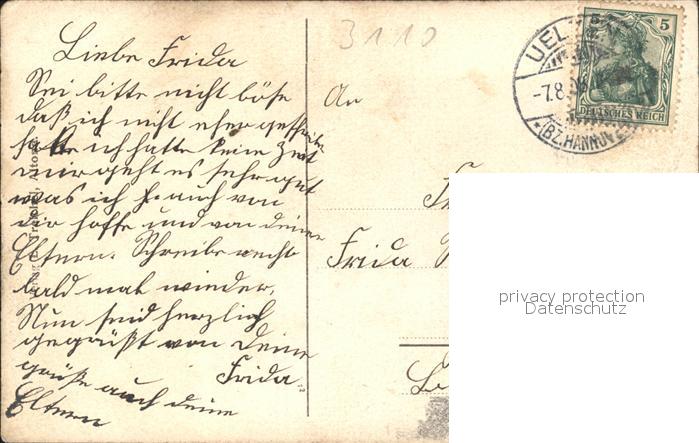 Liebe Frida
Sei bitte nicht böse
daß ich nicht eher geschrieben
hatte ich hatte keine Zeit
mir geht es sehr gut
was ich h. auch von
dir hoffe und von deinen
Eltern. Schreibe recht
bald mal wieder.
Nun seid herzlich
gegrüßt von Deine
Frida.
grüße auch deine
Eltern
3110
An
Frida
UEL
-7.8.
*(BZ.HANNOV
5
DEUTSCHES REICH
privacy protection
Datenschutz